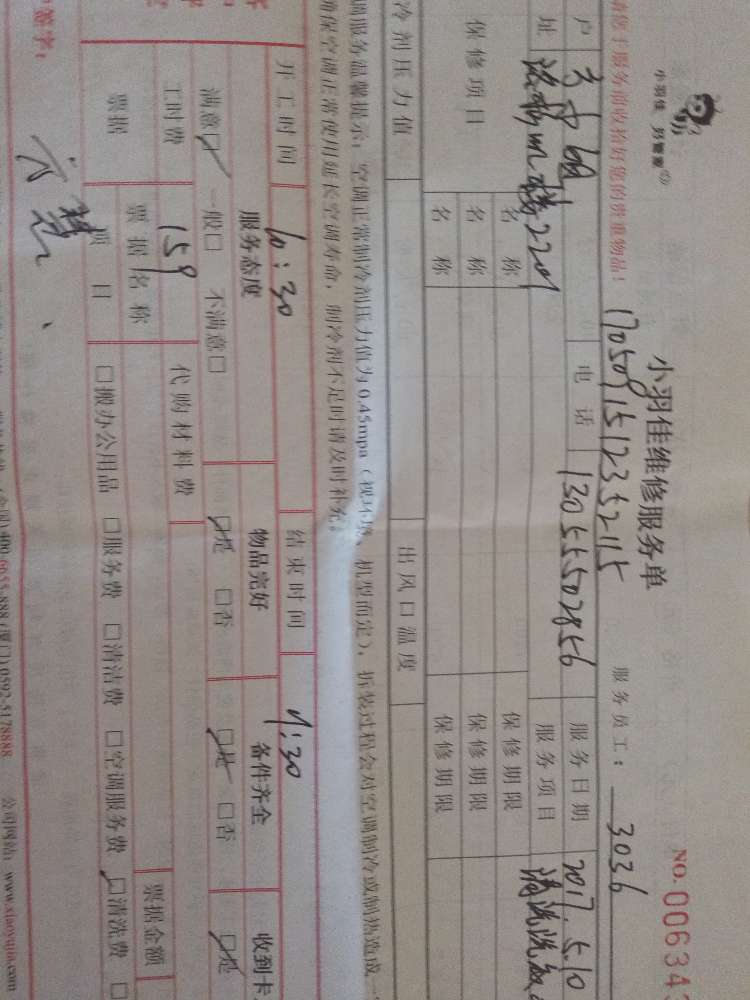 小羽佳维修服务单
NO.00634
小羽佳 好管家
17050915123352115
服务员工: 3036
请您于服务前收拾好您的贵重物品!
户
电话 13055502856
服务日期 2017.5.10
址
2201
服务项目 清洗洗
保修项目
名称
保修期限
名称
保修期限
名称
保修期限
冷剂压力值
出风口温度
调服务温馨提示: 空调正常制冷剂压力值为0.45mpa(视环境、机型而定),拆装过程会对空调制冷或制热造成一
确保空调正常使用延长空调寿命,制冷剂不足时请及时补充。
开工时间 10:30
结束时间 11:30
服务态度
物品完好
备件齐全
收到卡
满意□ 一般□ 不满意□
□是 □否
□是 □否
□是
工时费 159
代购材料费
票据
票据名称
票据金额
项目
□搬办公用品 □服务费 □清洁费 □空调服务费 □清洗费 □
签字:
400-6655-888(厦门)0592-5178888
公司网站: www.xiaoyujia.com